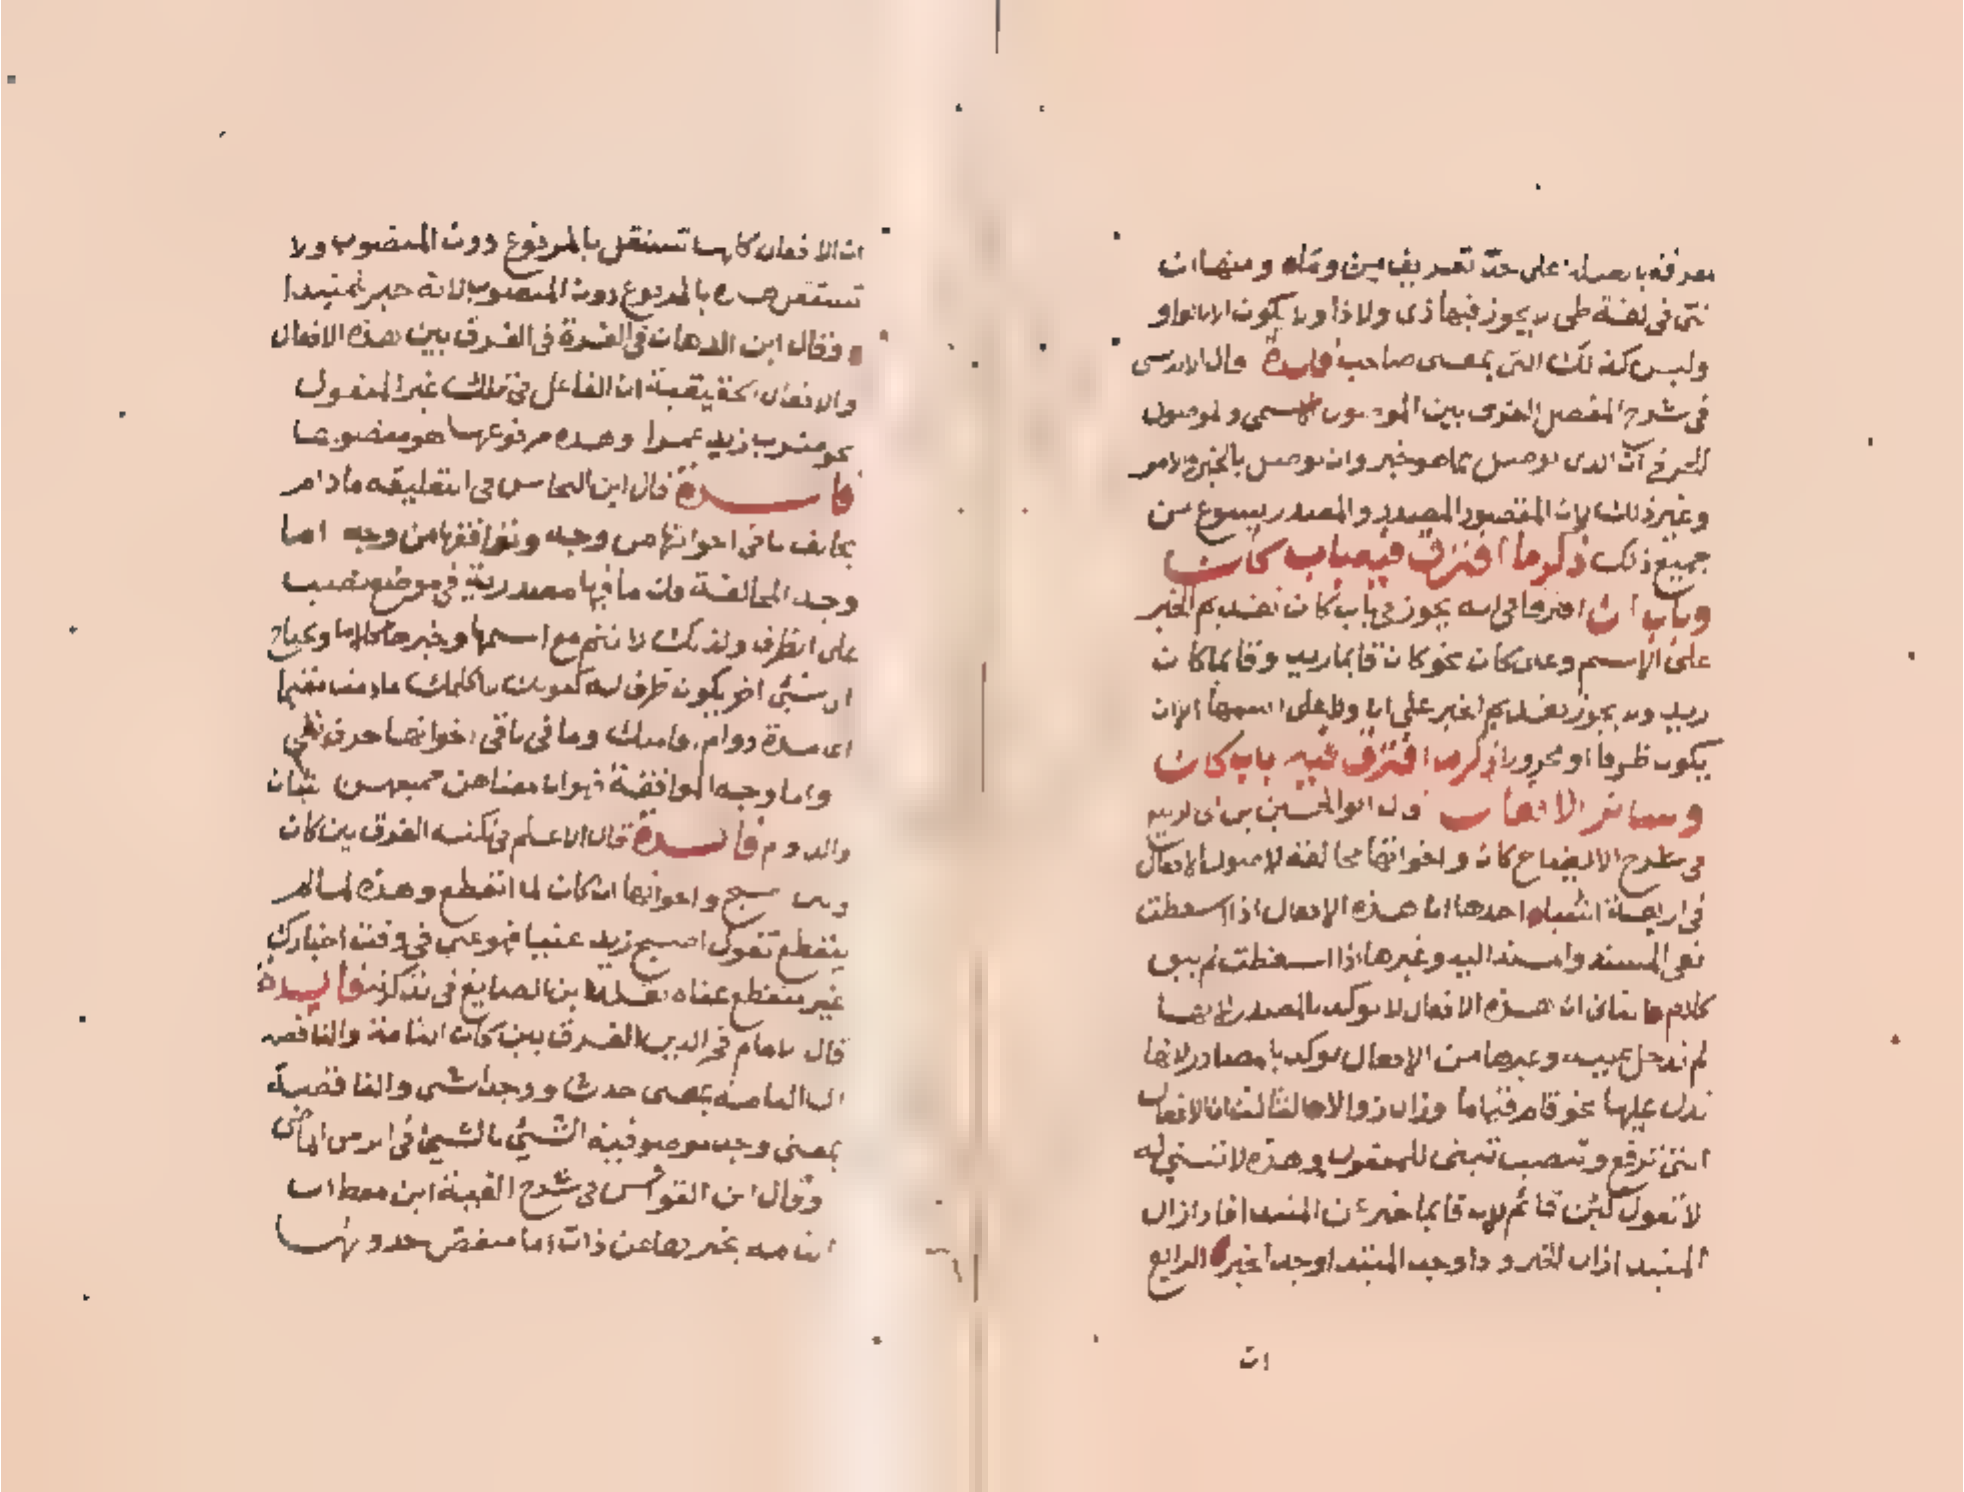 معرفة بالصلة على حد تعريف من وما ومنها ان
تثنى في لغة طي ولا يجوز فيها ذى ولا ذا ولا يكون الا بالواو
وليس كذلك التى بمعنى صاحب فايدة قال الاندلسى
في شرح المفصل الفرق بين الموصول الاسمى والموصول
الحرفى ان الذى يوصل بما هو خبر وان توصل بالخبر والامر
وغير ذلك لان المقصود المصدر والمصدر يسوغ من
جميع ذلك ذكر ما افترق فيه باب كان
وباب ان افترقا في انه يجوز في باب كان تقديم الخبر
على الاسم وعلى كان نحو كان قايما زيد وقايما كان
زيد ولا يجوز تقديم الخبر على ان ولا على اسمها الا ان
يكون ظرفا او مجرورا ذكر ما افترق فيه باب كان
وسائر الافعال قال ابو الحسين بن ابى الربيع
في شرح الايضاح كان واخواتها مخالفة لاصول الافعال
في اربعة اشياء احدها ان هذه الافعال اذا اسقطت
بقى المسند والمسند اليه وغيرها اذا اسقطت لم يبق
كلام الثانى ان هذه الافعال لا توكد بالمصدر لانها
لم تدخل عليه وغيرها من الافعال توكد بالمصادر لانها
تدل عليها نحو قام قياما وزال زوالا الثالث ان الافعال
التى ترفع وتنصب تبنى للمفعول وهذه لا تبنى له
لا تقول كين قائم لان قايما خبر عن المبتدا فاذا زال
المبتدا زال الخبر واذا وجد المبتدا وجد الخبر الرابع
ان
ان الافعال كلها تستقل بالمرفوع دون المنصوب ولا
تستقل هذه بالمرفوع دون المنصوب لانه خبر لمبتدا
وقال ابن الدهان في الغرة في الفرق بين هذه الافعال
والافعال الحقيقية ان الفاعل في تلك غير المفعول
نحو ضرب زيد عمرا وهذه مرفوعها هو منصوبها
فايدة قال ابن النحاس في التعليقة ما دام
تخالف باقى اخواتها من وجه وتوافقها من وجه اما
وجه المخالفة فان ما فيها مصدرية في موضع نصب
على الظرف ولذلك لا تتم مع اسمها وخبرها كلاما وتحتاج
الى شئ اخر يكون ظرفا له كقولك لا اكلمك ما دمت مقيما
اى مدة دوام اقامتك وما في باقى اخواتها حرف نفى
واما وجه الموافقة فهو ان معناهن جميعهن ثبات
والدوام فايدة قال الاعلم في نكته الفرق بين كان
وبين اصبح واخواتها ان كان لما انقطع وهذه لما لم
ينقطع تقول اصبح زيد غنيا فهو غنى في وقت اخبارك
غير منقطع غناه نقله ابن الصايغ في تذكرته فايدة
قال الامام فخر الدين الفرق بين كان التامة والناقصة
ان التامة بمعنى حدث ووجد الشى والناقصة
بمعنى وجد موصوفية الشئ بالشئ في الزمن الماضى
وقال ابن القواس في شرح الفية ابن معط ان
التامة يخبر بها عن ذات اما منقض حدوثها